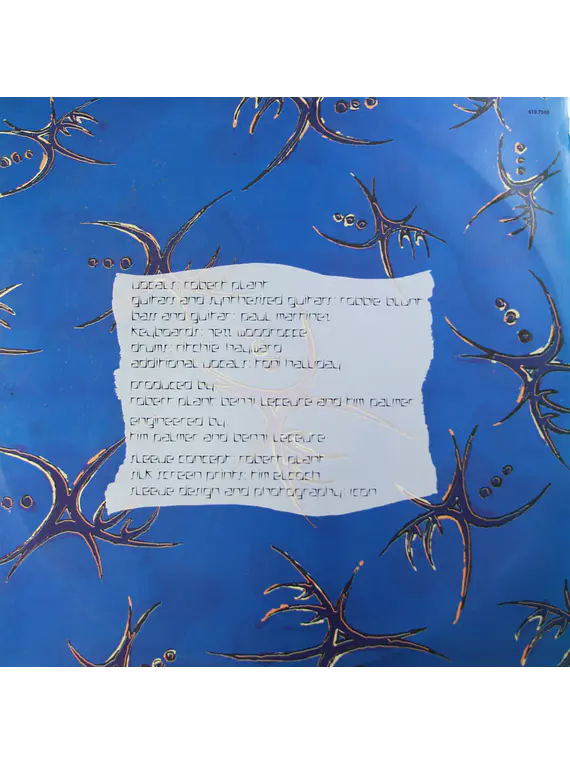 619 7599
vocals: robert plant
guitars and synthesised guitars: robbie blunt
bass and guitar: paul martinez
keyboards: jezz woodroffe
drums: ritchie hayward
additional vocals: toni halliday
produced by
robert plant benji lefevre and tim palmer
engineered by
tim palmer and benji lefevre
sleeve concept: robert plant
silk screen prints: tim elcock
sleeve design and photography: icon